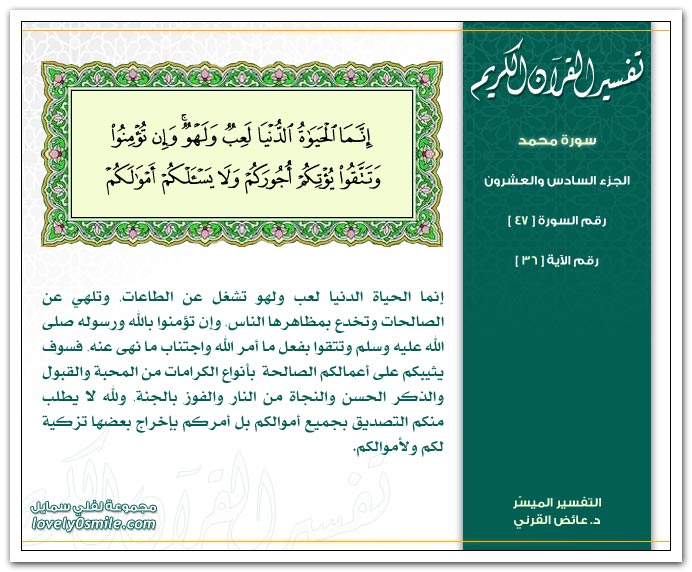 تفسير القرآن الكريم
سورة محمد
الجزء السادس والعشرون
رقم السورة [ ٤٧ ]
رقم الآية [ ٣٦ ]
إِنَّمَا ٱلْحَيَوٰةُ ٱلدُّنْيَا لَعِبٌ وَلَهْوٌ ۚ وَإِن تُؤْمِنُوا۟
وَتَتَّقُوا۟ يُؤْتِكُمْ أُجُورَكُمْ وَلَا يَسْـَٔلْكُمْ أَمْوَٰلَكُمْ
إنما الحياة الدنيا لعب ولهو تشغل عن الطاعات، وتلهي عن
الصالحات وتخدع بمظاهرها الناس، وإن تؤمنوا بالله ورسوله صلى
الله عليه وسلم وتتقوا بفعل ما أمر الله واجتناب ما نهى عنه، فسوف
يثيبكم على أعمالكم الصالحة بأنواع الكرامات من المحبة والقبول
والذكر الحسن والنجاة من النار والفوز بالجنة، ولله لا يطلب
منكم التصديق بجميع أموالكم بل أمركم بإخراج بعضها تزكية
لكم ولأموالكم.
التفسير الميسّر
د. عائض القرني
مجموعة لفلي سمايل
lovely0smile.com
تفسير القرآن الكريم